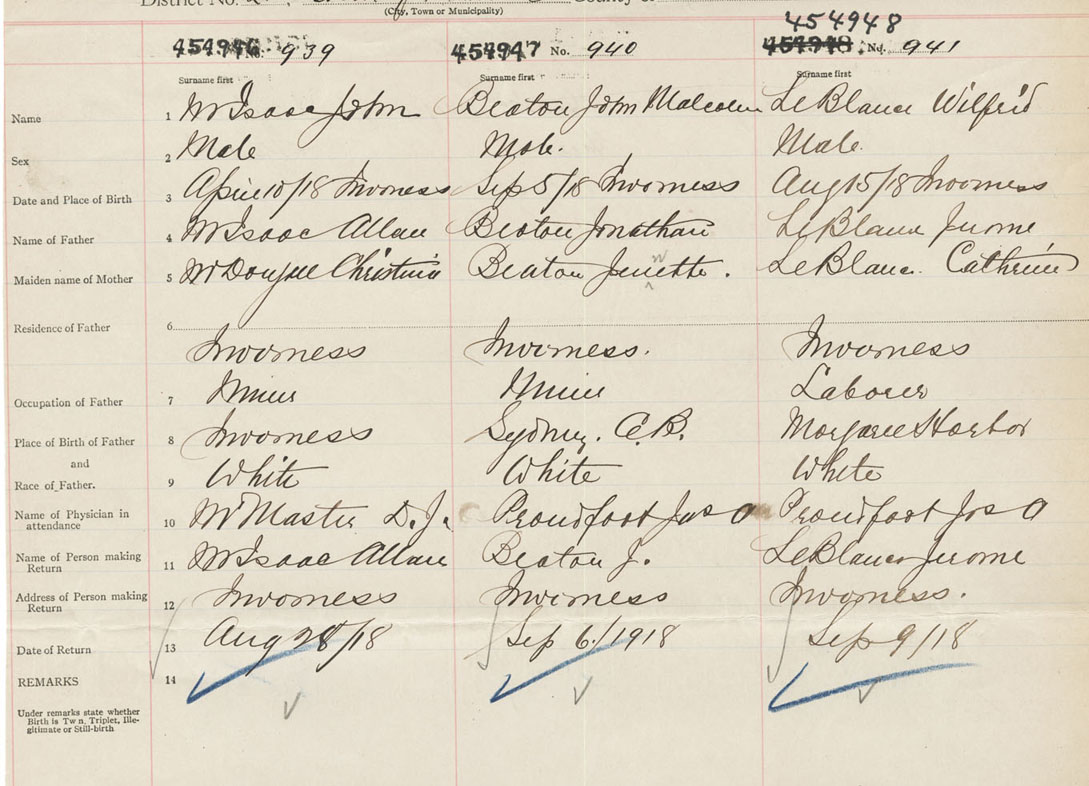 District No. 2, County of
(City, Town or Municipality)
454948
454946 No. 939 454947 No. 940 454948 No. 941
Surname first Surname first Surname first
Name 1 McIsaac John Beaton John Malcolm LeBlanc Wilfrid
Sex 2 Male Male. Male.
Date and Place of Birth 3 April 10/18 Inverness Sep 5/18 Inverness Aug 15/18 Inverness
Name of Father 4 McIsaac Allan Beaton Jonathan LeBlanc Jerome
Maiden name of Mother 5 Christina Beaton . LeBlanc. Catherine
Residence of Father 6
Inverness Inverness. Inverness
Occupation of Father 7 Miner Miner Laborer
Place of Birth of Father 8 Inverness Sydney. C.B. Margaree Harbor
and
Race of Father. 9 White White White
Name of Physician in
attendance 10 McMaster D.J. Proudfoot Jas A Proudfoot Jas A
Name of Person making
Return 11 McIsaac Allan Beaton J. LeBlanc Jerome
Address of Person making
Return 12 Inverness Inverness Inverness.
Date of Return 13 Aug 28/18 Sep 6/1918 Sep 9/18
REMARKS 14
Under remarks state whether
Birth is Tw n, Triplet, Ille-
gitimate or Still-birth